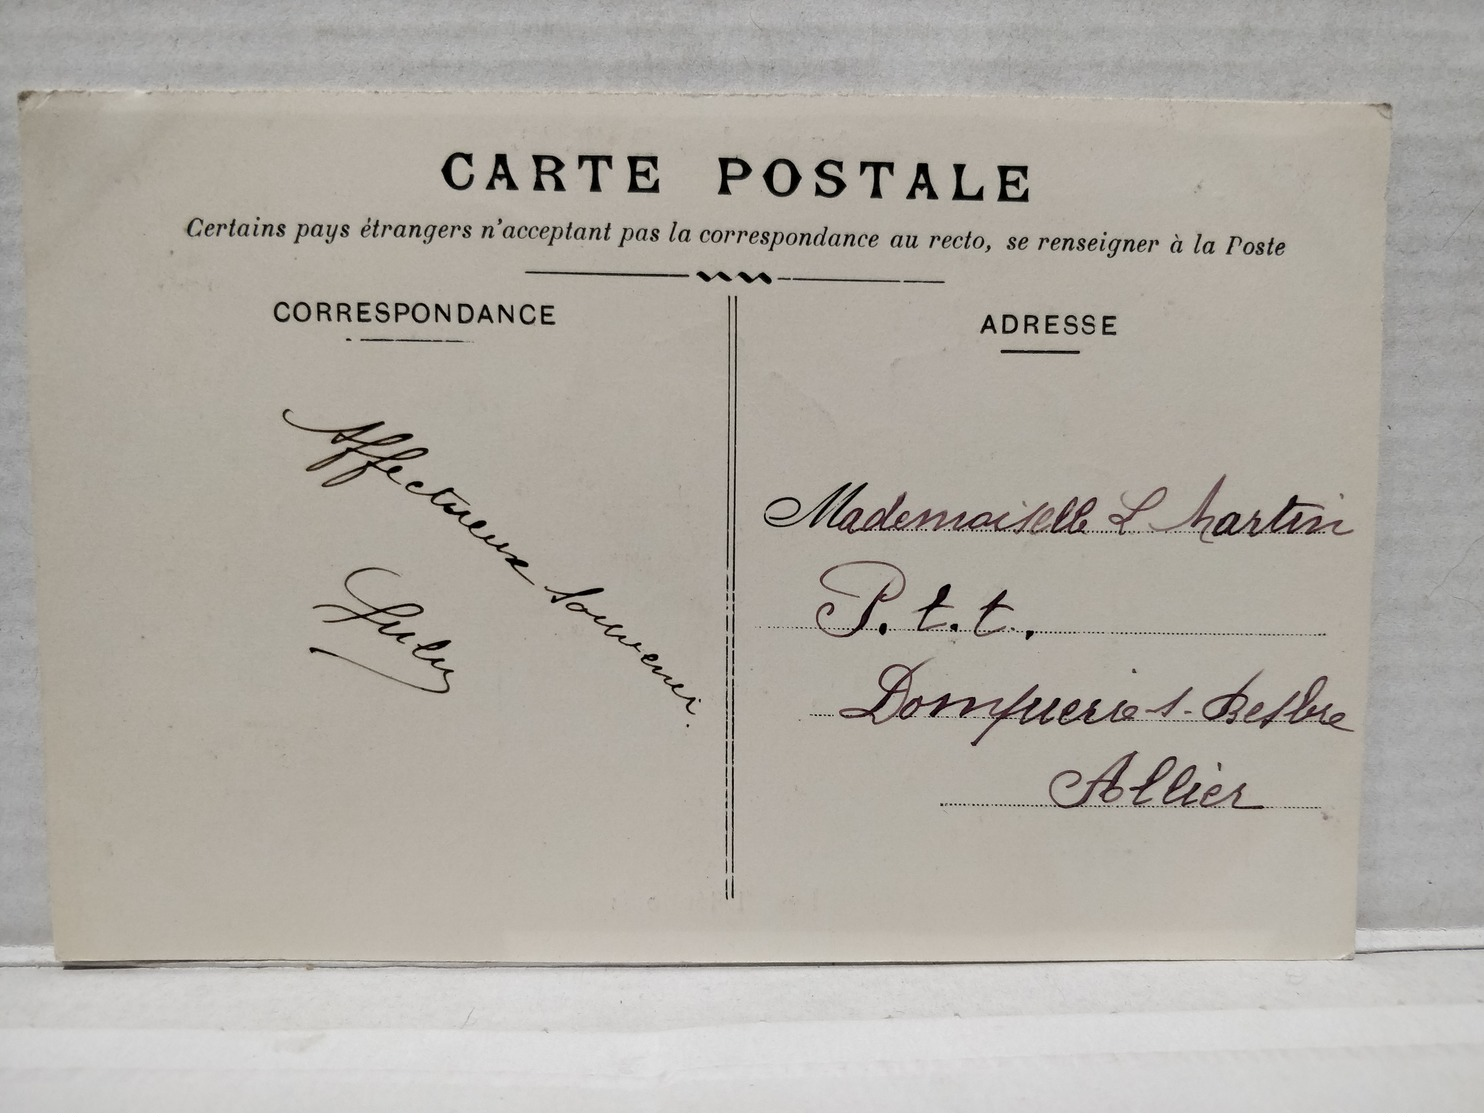 CARTE POSTALE
Certains pays étrangers n'acceptant pas la correspondance au recto, se renseigner à la Poste
CORRESPONDANCE
Affectueux souvenir.
ADRESSE
Mademoiselle L Martin
P. t. t.
Dompierre s. Besbre
Allier